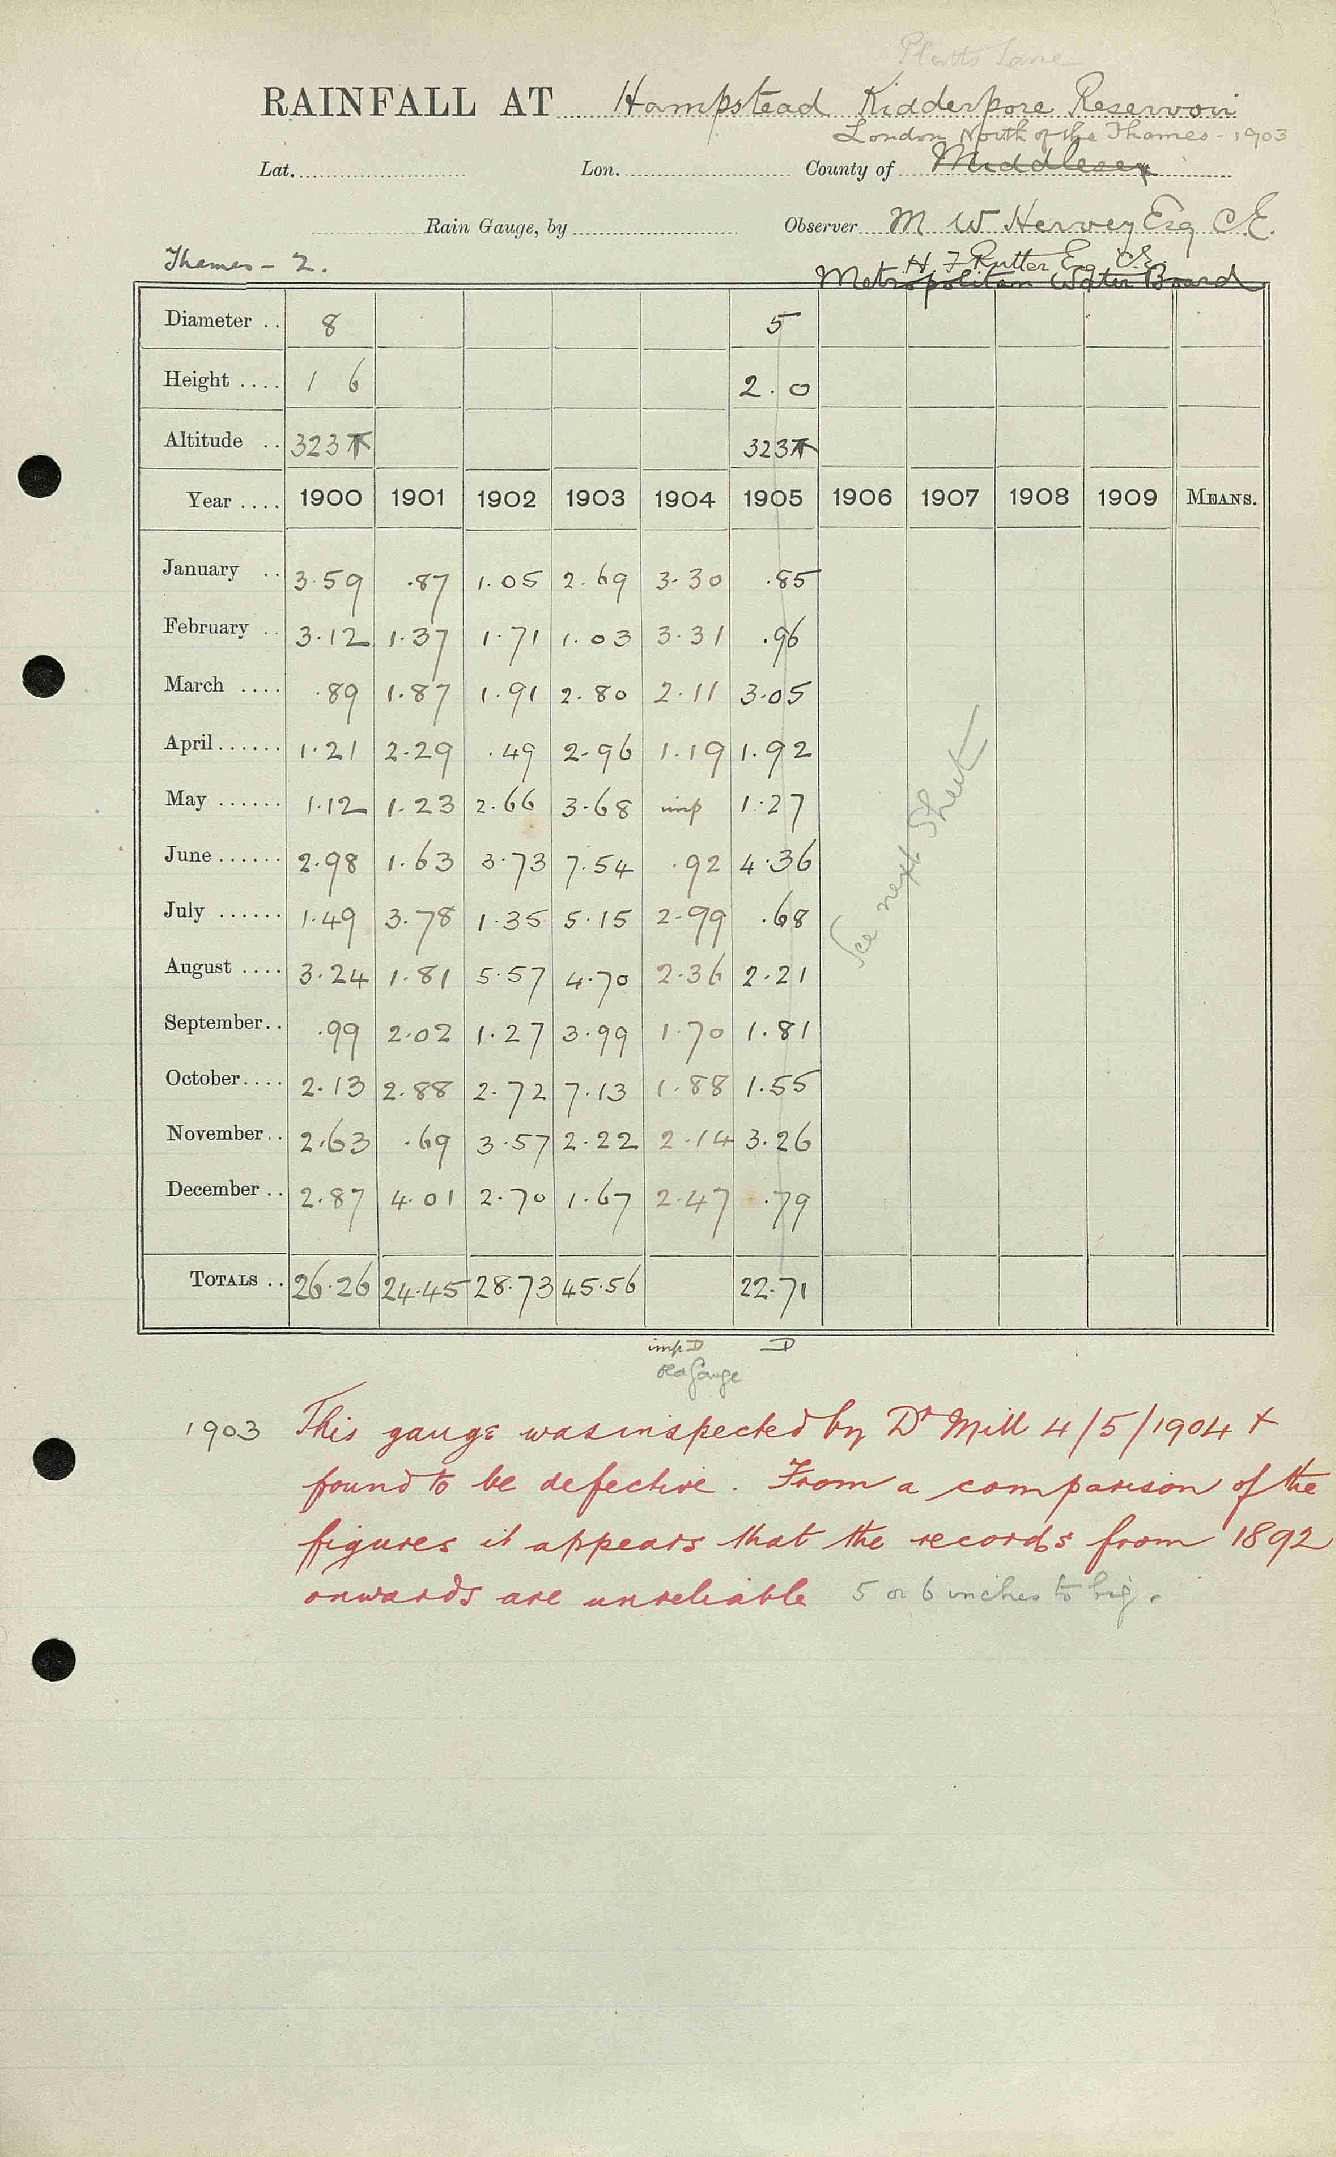 Platts Lane
RAINFALL AT Hampstead Kidderpore Reservoir
London North of the Thames - 1903
Lat. Lon. County of Middlesex
Rain Gauge, by Observer M W Hervey Esq C.E.
Thames - 2. H F Rutter Esq C.E.
Metropolitan Water Board
Diameter .. 8 5
Height .... 1 6 2.0
Altitude .. 323 T 323 T
Year .... 1900 1901 1902 1903 1904 1905 1906 1907 1908 1909 MEANS.
January .. 3.59 .87 1.05 2.69 3.30 .85
February .. 3.12 1.37 1.71 1.03 3.31 .96
March .... .89 1.87 1.91 2.80 2.11 3.05
April...... 1.21 2.29 .49 2.96 1.19 1.92
May ...... 1.12 1.23 2.66 3.68 imp 1.27
June ...... 2.98 1.63 3.73 7.54 .92 4.36
July ...... 1.49 3.78 1.35 5.15 2.99 .68
See next Sheet
August .... 3.24 1.81 5.57 4.70 2.36 2.21
September.. .99 2.02 1.27 3.99 1.70 1.81
October.... 2.13 2.88 2.72 7.13 1.88 1.55
November.. 2.63 .69 3.57 2.22 2.14 3.26
December .. 2.87 4.01 2.70 1.67 2.47 .79
TOTALS .. 26.26 24.45 28.73 45.56 22.71
imp D D
old gauge
1903 This gauge was inspected by Dr Mill 4/5/1904 +
found to be defective. From a comparison of the
figures it appears that the records from 1892
onwards are unreliable 5 or 6 inches to big.